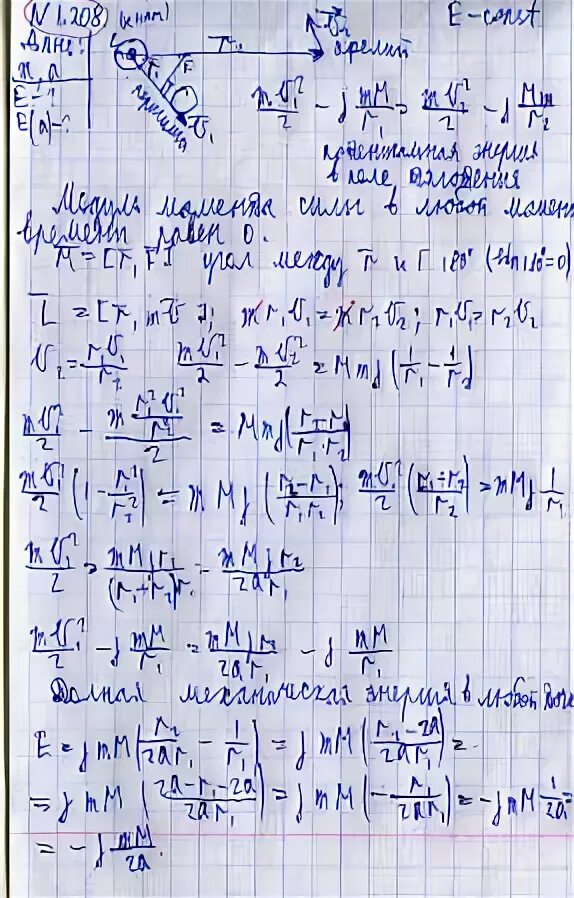 N 1.208
E-const
Дано:
m, a
E - ?
E(a) - ?
r₂
v₂
афелий
r₁
F
v₁
mv₁²/2 - γ mM/r₁ = mv₂²/2 - γ Mm/r₂
потенциальная энергия
в поле тяготения
Модуль момента силы в любой момен
времени равен 0.
M = [r, F] угол между r и F 180° (sin 180° = 0)
L = [r, mv]; m r₁ v₁ = m r₂ v₂; r₁v₁ = r₂v₂
v₂ = r₁v₁/r₂ mv₁²/2 - mv₂²/2 = Mmγ (1/r₁ - 1/r₂)
mv₁²/2 - m (r₁²v₁²/r₂²)/2 = Mmγ ((r₂-r₁)/(r₁·r₂))
mv₁²/2 (1 - r₁²/r₂²) = mMγ ((r₂-r₁)/(r₁r₂)); mv₁²/2 ((r₁+r₂)/r₂) = mMγ 1/r₁
mv₁²/2 = mMγr₂/((r₁+r₂)r₁) = mMγr₂/(2ar₁)
mv₁²/2 - γ mM/r₁ = mMγr₂/(2ar₁) - γ mM/r₁
Полная механическая энергия в любой точке
E = γmM (r₂/(2ar₁) - 1/r₁) = γmM ((r₂-2a)/(2ar₁)) =
= γmM ((2a-r₁-2a)/(2ar₁)) = γmM (-r₁/(2ar₁)) = -γmM 1/2a =
= -γ mM/2a